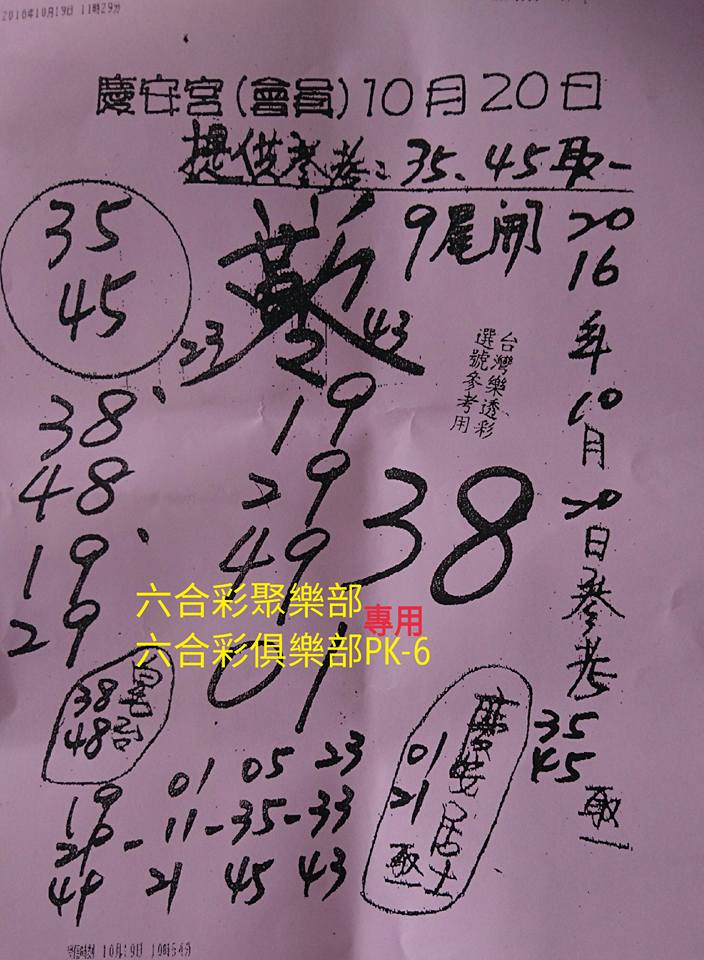 2016年10月19日 11時29分
慶安宮(會員)10月20日
提供參考:35、45取一
35
45
9尾開
2016年10月20日參考
35
45
取一
23
2
43
台灣樂透彩
選號參考用
38、
48
19、
29
19
29
49
01
38
六合彩聚樂部
專用
六合彩俱樂部PK-6
38
48
01
21
取一
慶安居士
01 05 23
19
29-11-35-33
49 21 45 43
10月19日 10時54分